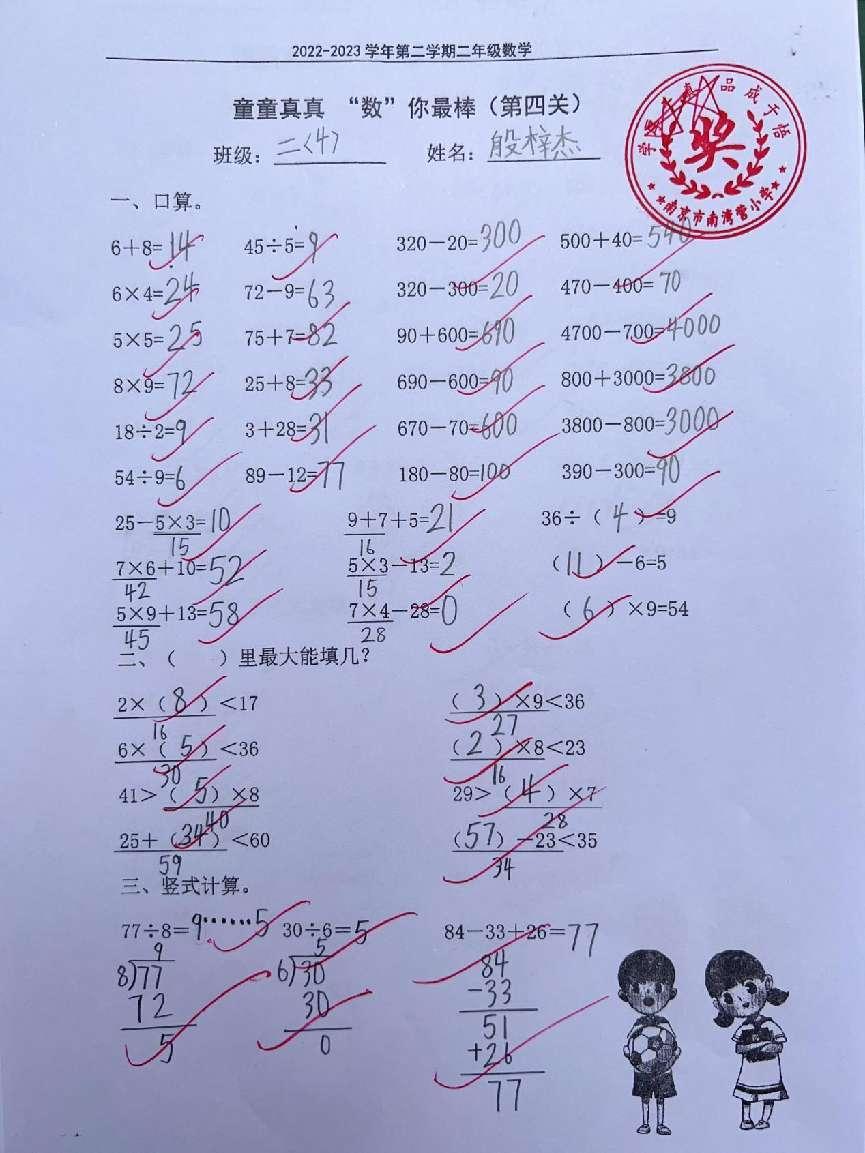 2022-2023 学年第二学期二年级数学
童童真真 “数”你最棒（第四关）
班级：二(4) 姓名：殷梓杰
学 品成于悟
奖
南京市南湾营小学
一、口算。
6+8=14 45÷5=9 320－20=300 500+40=540
6×4=24 72－9=63 320－300=20 470－400=70
5×5=25 75+7=82 90+600=690 4700－700=4000
8×9=72 25+8=33 690－600=90 800+3000=3800
18÷2=9 3+28=31 670－70=600 3800－800=3000
54÷9=6 89－12=77 180－80=100 390－300=90
25－5×3=10 9+7+5=21 36÷（4）=9
15 16
7×6+10=52 5×3－13=2 （11）－6=5
42 15
5×9+13=58 7×4－28=0 （6）×9=54
45 28
二、（ ）里最大能填几？
2×（8）<17 （3）×9<36
16 27
6×（5）<36 （2）×8<23
30 16
41>（5）×8 29>（4）×7
40 28
25+（34）<60 （57）－23<35
59 34
三、竖式计算。
77÷8=9……5 30÷6=5 84－33+26=77
9 5 84
8)77 6)30 -33
72 30 51
5 0 +26
77